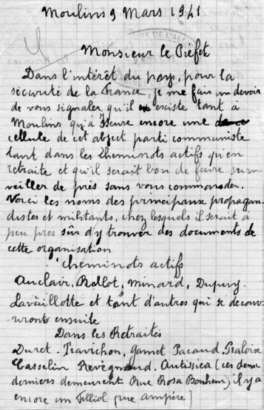 Moulins 9 Mars 1941
Monsieur le Préfet
Dans l'intérêt du pays, pour la
sécurité de la France, je me fais un devoir
de vous signaler qu'il existe tant à
Moulins qu'à encore une
cellule de cet abject parti communiste
tant dans les cheminots actifs qu'en
retraite et qu'il serait bon de faire sur
veiller de près sans vous commander.
Voici les noms des principaux propagan
distes et militants, chez lesquels il serait à
peu près sûr d'y trouver des documents de
cette organisation
Cheminots actifs
Auclair, Rallot, Minard, Dupuy
Lavaillotte et tant d'autres qui se décou
vriront ensuite
Dans les Retraités
Duret, Travichon, Gamet Pacaud,
Casselin Antissica (ces deux
derniers demeurent Rue Rosa Bonheur) il y a
encore un (rue Ampère)